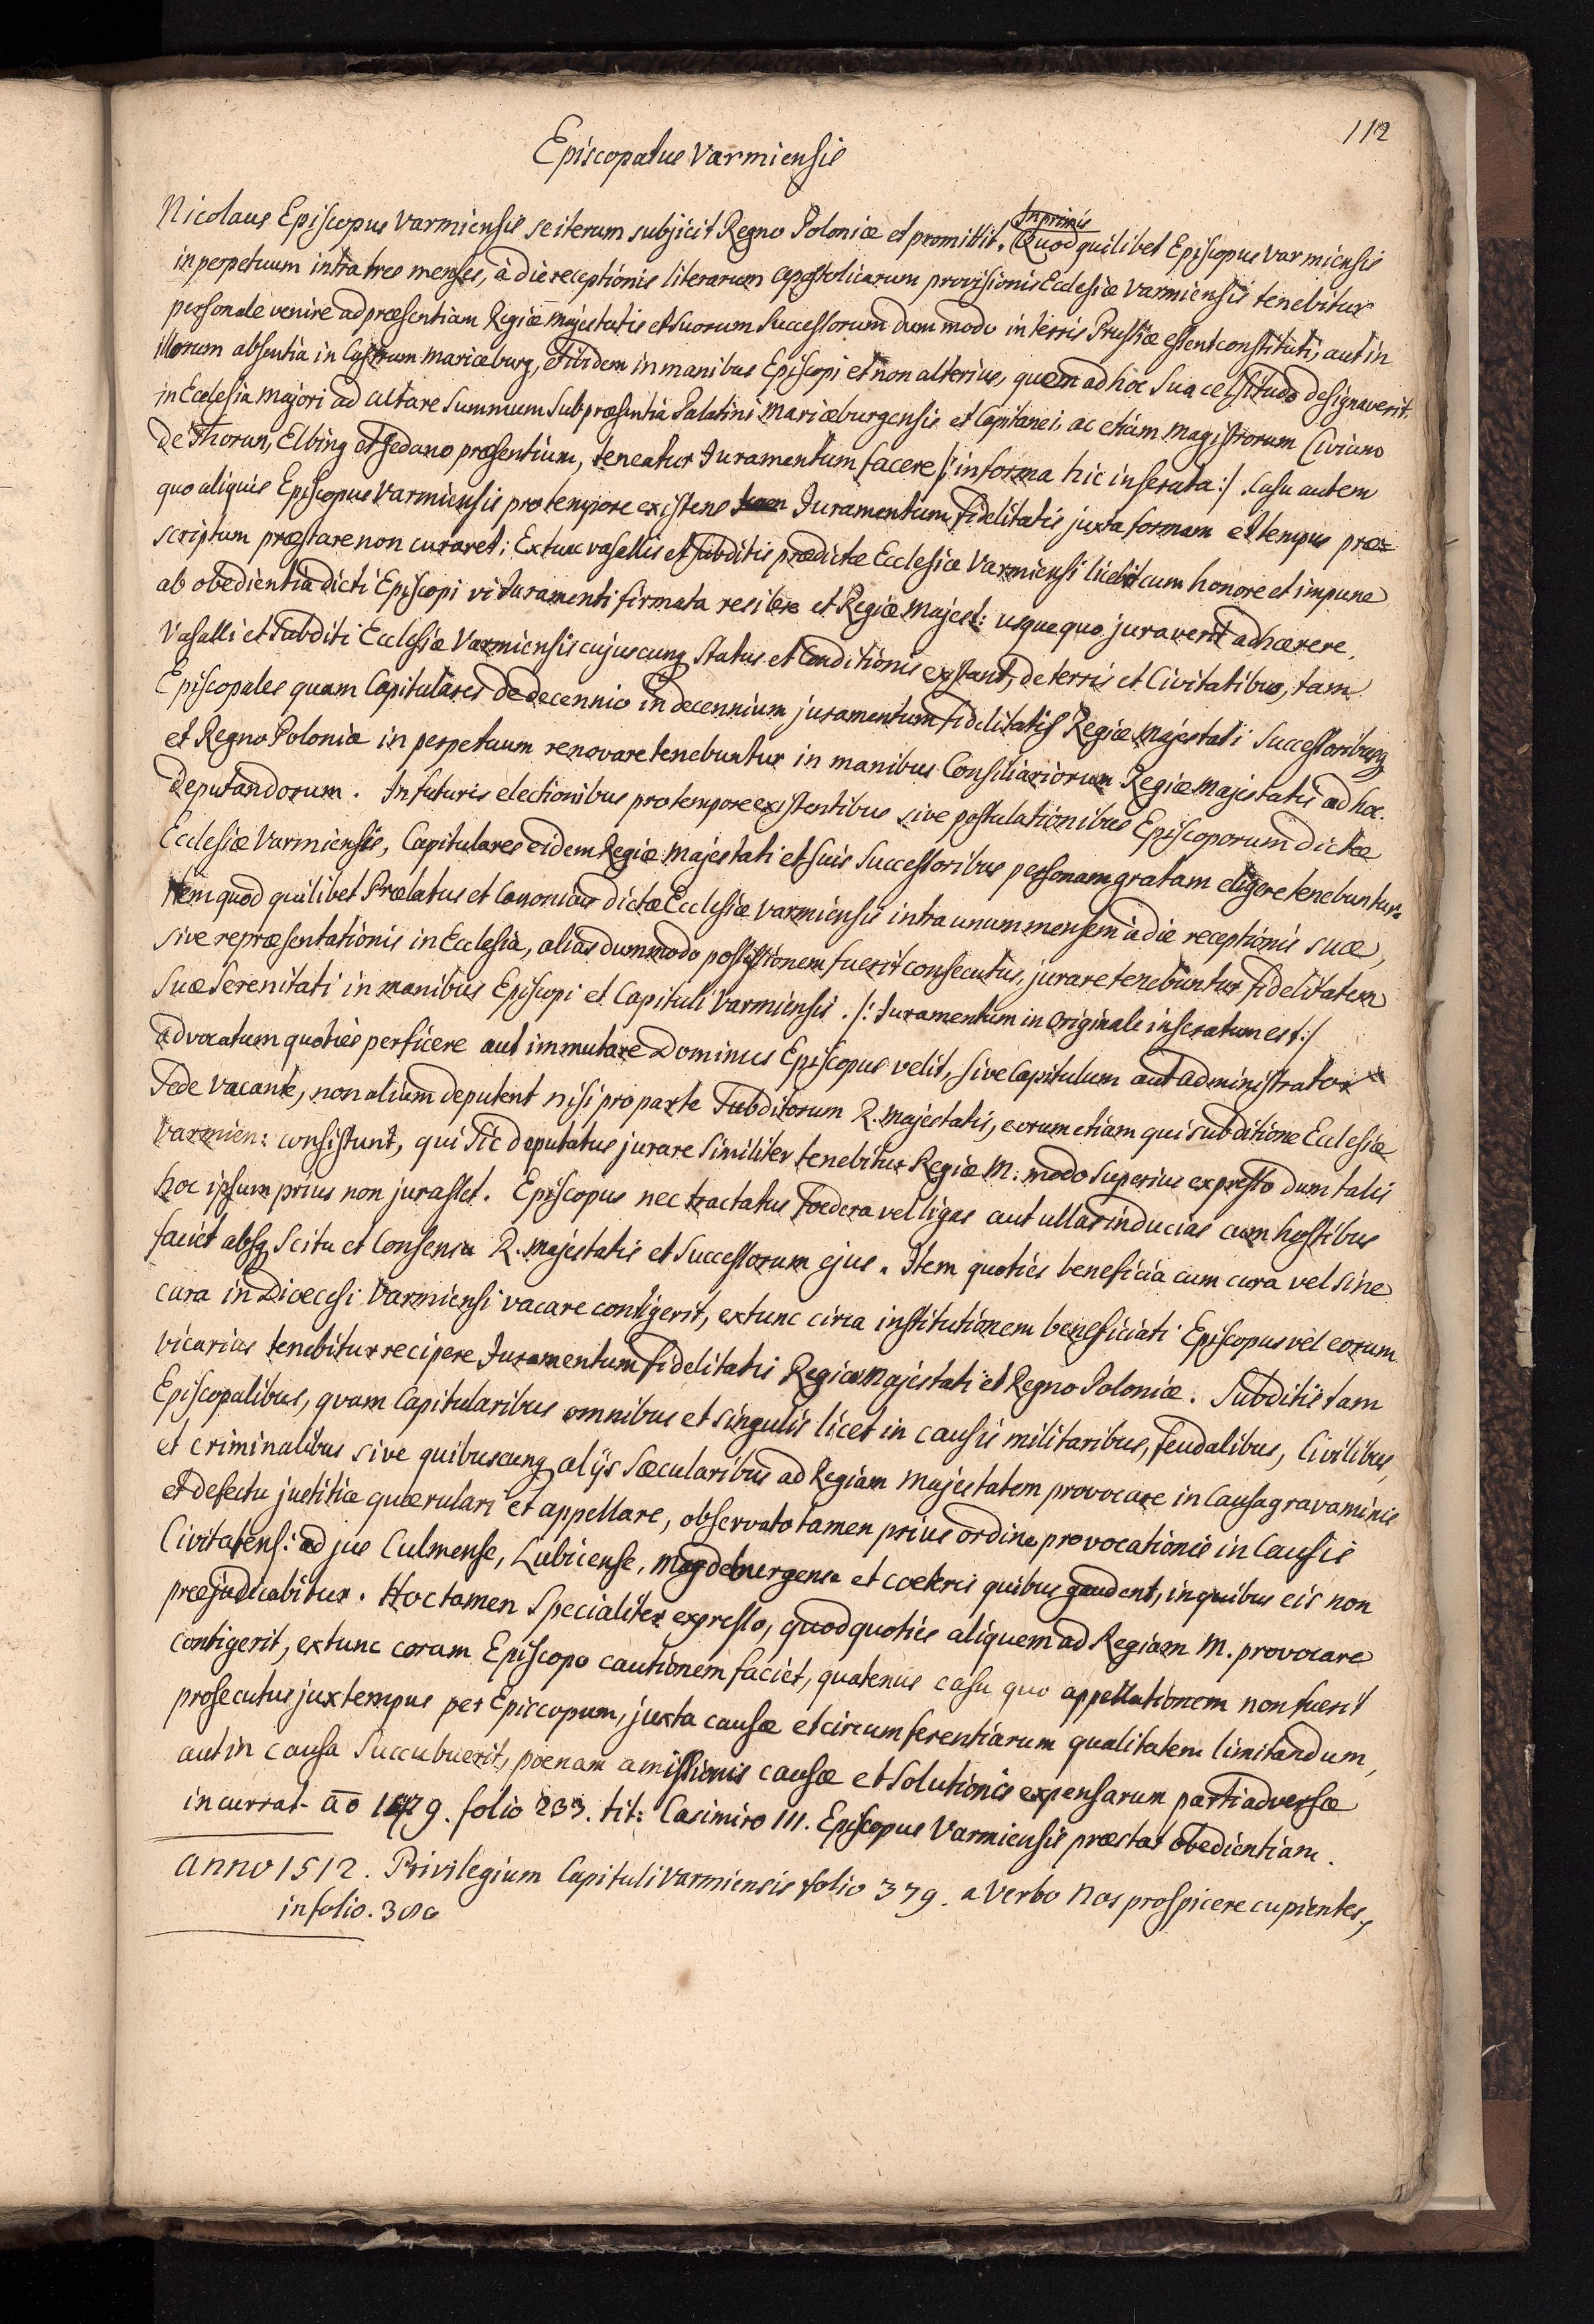 112
Episcopatus Varmiensis
Inprimis
Nicolaus Episcopus Varmiensis se iterum subjicit Regno Poloniæ et promittit. Quod quilibet Episcopus Varmiensis
in perpetuum intra tres menses, à die receptionis literarum Apostolicarum provisionis Ecclesiæ Varmiensis tenebitur
personale venire ad præsentiam Regiæ Majestatis et Suorum Successorum dum modo in terris Prussiæ essent constituti, aut in
illorum absentia in Castrum Mariæburg, et ibidem in manibus Episcopi et non alterius, quem ad hoc Sua celsitudo designaverit.
in Ecclesia Majori ad altare Summum Sub præsentia Palatini Mariæburgensis et Capitanei, ac etiam Magistrorum Civium
de Thorun, Elbing et Gedano præsentium, teneatur Juramentum facere /: in forma hic inserata :/. Casu autem
quo aliquis Episcopus Varmiensis pro tempore existens Juramentum Fidelitatis juxta formam et tempus præ=
scriptum præstare non curaret; Extunc vasallis et Subditis prædictæ Ecclesiæ Varmiensi licebit cum honore et impune
ab obedientia dicti Episcopi vi Juramenti firmata resilire et Regiæ Majest: usque quo juraverit adhærere.
Vasalli et Subditi Ecclesiæ Varmiensis cujuscunq Status et Conditionis existant, de terris et Civitatibus, tam
Episcopales quam Capitulares de decennio in decennium juramentum fidelitatis Regiæ Majestati Successoribusq
et Regno Poloniæ in perpetuum renovare tenebuntur in manibus Consiliariorum Regiæ Majestatis ad hoc
deputandorum. In futuris electionibus pro tempore existentibus sive postulationibus Episcoporum dictæ
Ecclesiæ Varmiensis, Capitulares eidem Regiæ Majestati et Suis Successoribus personam gratam eligere tenebuntur.
Item quod quilibet Prælatus et Canonicus dictæ Ecclesiæ Varmiensis intra unum mensem à die receptionis suæ,
sive repræsentationis in Ecclesia, alias dummodo possessionem fuerit consecutus, jurare tenebuntur fidelitatem
Suæ Serenitati in manibus Episcopi et Capituli Varmiensis. /: Juramentum in Originale inseratum est :/
advocatum quoties perficere aut immutare Dominus Episcopus velit, sive Capitulum aut administrator
Sede vacante, non alium deputent nisi pro parte Subditorum R. Majestatis, eorum etiam qui sub ditione Ecclesiæ
Varmien: consistunt, qui Sic deputatus jurare Similiter tenebitur Regiæ M: modo Superius expresso dum talis
hoc ipsum prius non jurasset. Episcopus nec tractatus Foedera vel ligas aut ullas inducias cum hostibus
faciet absq Scitu et Consensu R. Majestatis et Successorum ejus. Item quoties beneficia cum cura vel sine
cura in Dioecesi Varmiensi vacare contigerit, extunc circa institutionem beneficiati Episcopus vel eorum
vicarius tenebitur recipere Juramentum Fidelitatis Regiæ Majestati et Regno Poloniæ. Subditis tam
Episcopalibus, quam Capitularibus omnibus et singulis licet in causis militaribus, Feudalibus, Civilibus,
et Criminalibus sive quibuscunq alijs Sæcularibus ad Regiam Majestatem provocare in Causa gravaminis
et defectu justitiæ quærulari et appellare, observato tamen prius ordine provocationis in Causis
Civitatens: ad jus Culmense, Lubicense, Magdeburgense et coeteris quibus gaudent, in quibus eis non
præjudicabitur. Hoc tamen Specialiter expresso, quod quoties aliquem ad Regiam M. provocare
contigerit, extunc coram Episcopo cautionem faciet, quatenus casu quo appellationem non fuerit
prosecutus jux tempus per Episcopum, juxta causæ et circumferentiarum qualitatem limitandum,
aut in causa Succubuerit, poenam amissionis causæ et Solutionis expensarum parti adversæ
incurrat. Ao 1479. folio 233. tit: Casimiro III. Episcopus Varmiensis præstat obedientiam.
Anno 1512. Privilegium Capituli Varmiensis folio 379. a Verbo Nos prospicere cupientes,
in folio.